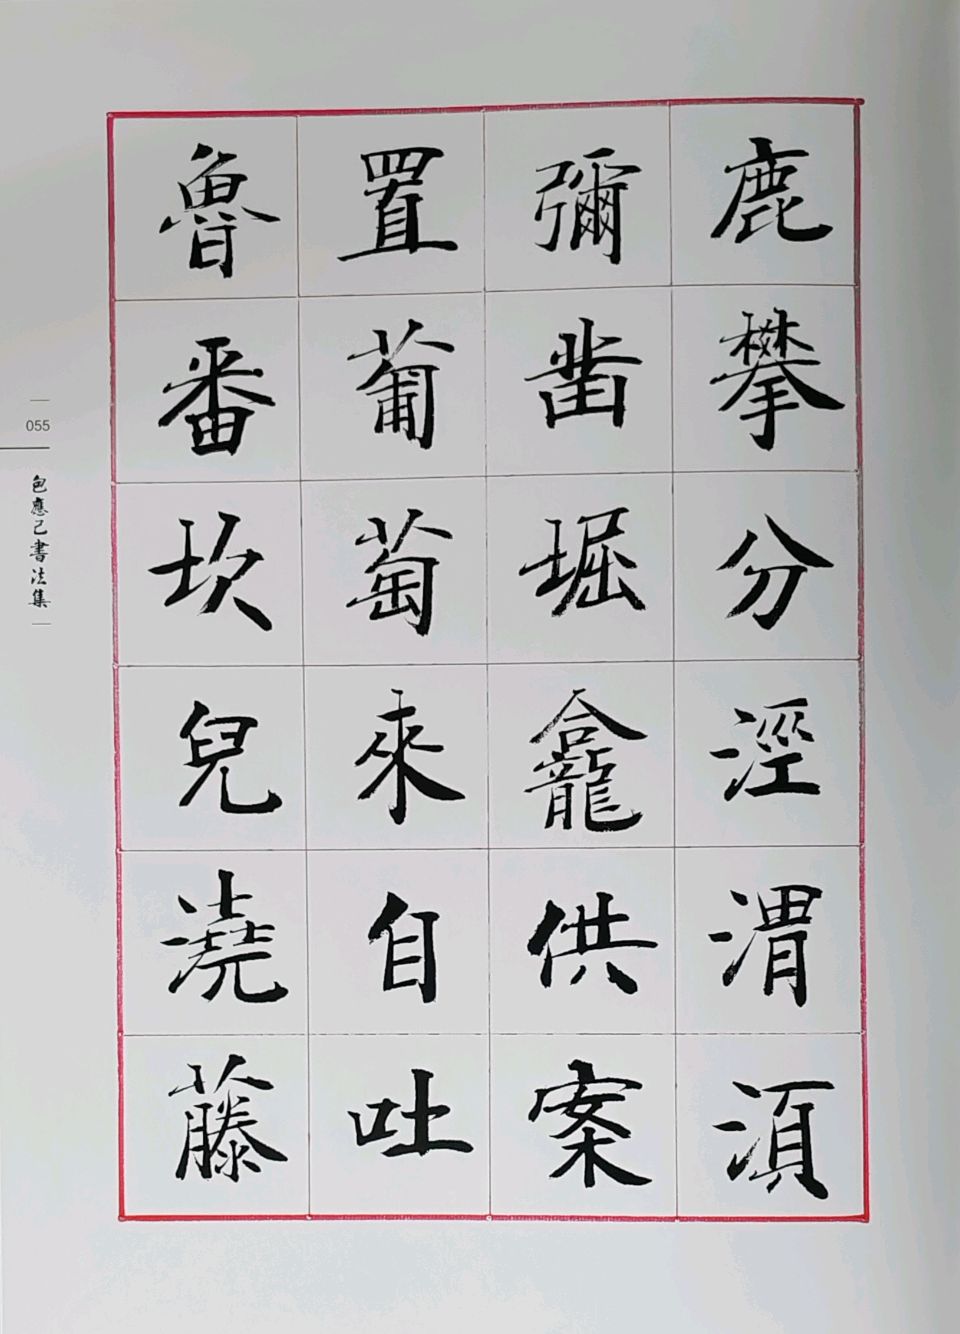 鹿攀分涇渭湏
彌凿堀龕供案
置葡萄來自吐
魯番坎兒澆藤
055
包應己書法集